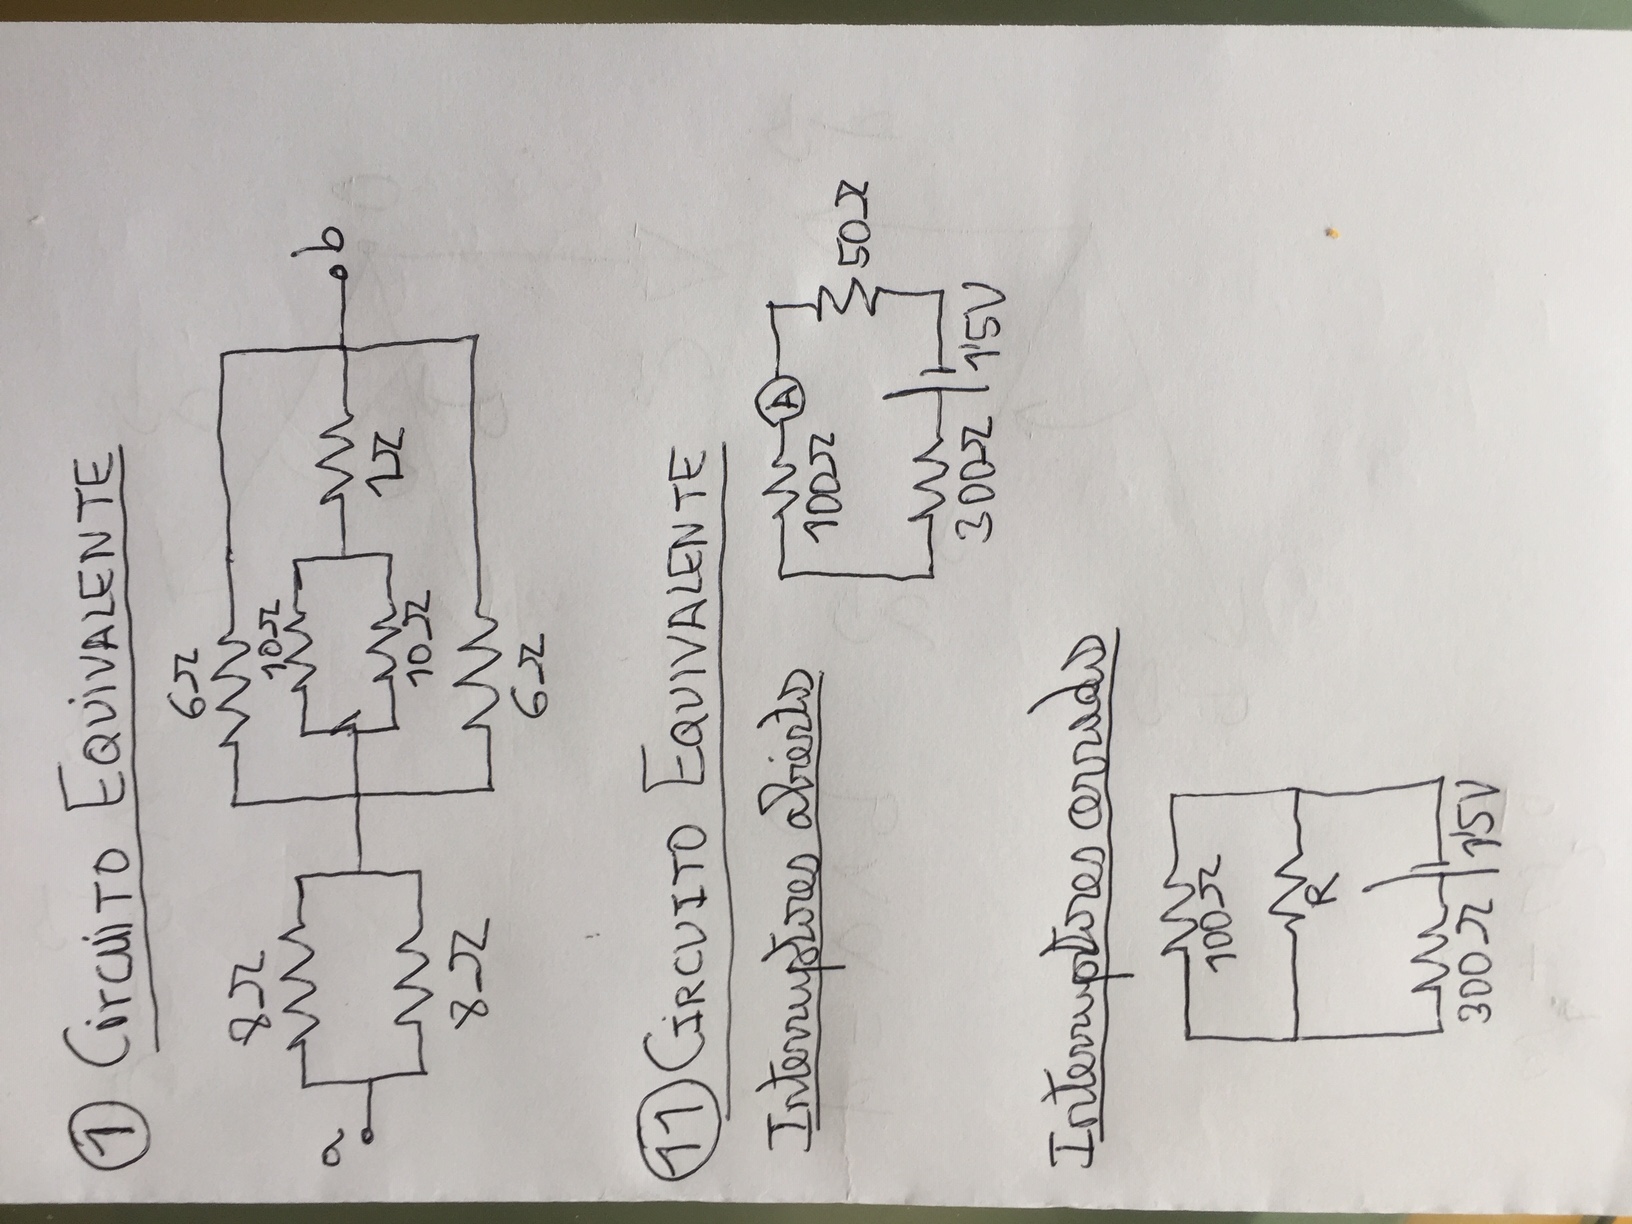 1 CirCUiTO EQUiVALENTE
6Ω
8Ω
10Ω
a
b
1Ω
10Ω
8Ω
6Ω
11 CIRCUITO EQUIVALENTE
Interruptores abiertos
A
100Ω
50Ω
300Ω 1'5V
Interruptores cerrados
100Ω
R
300Ω 1'5V